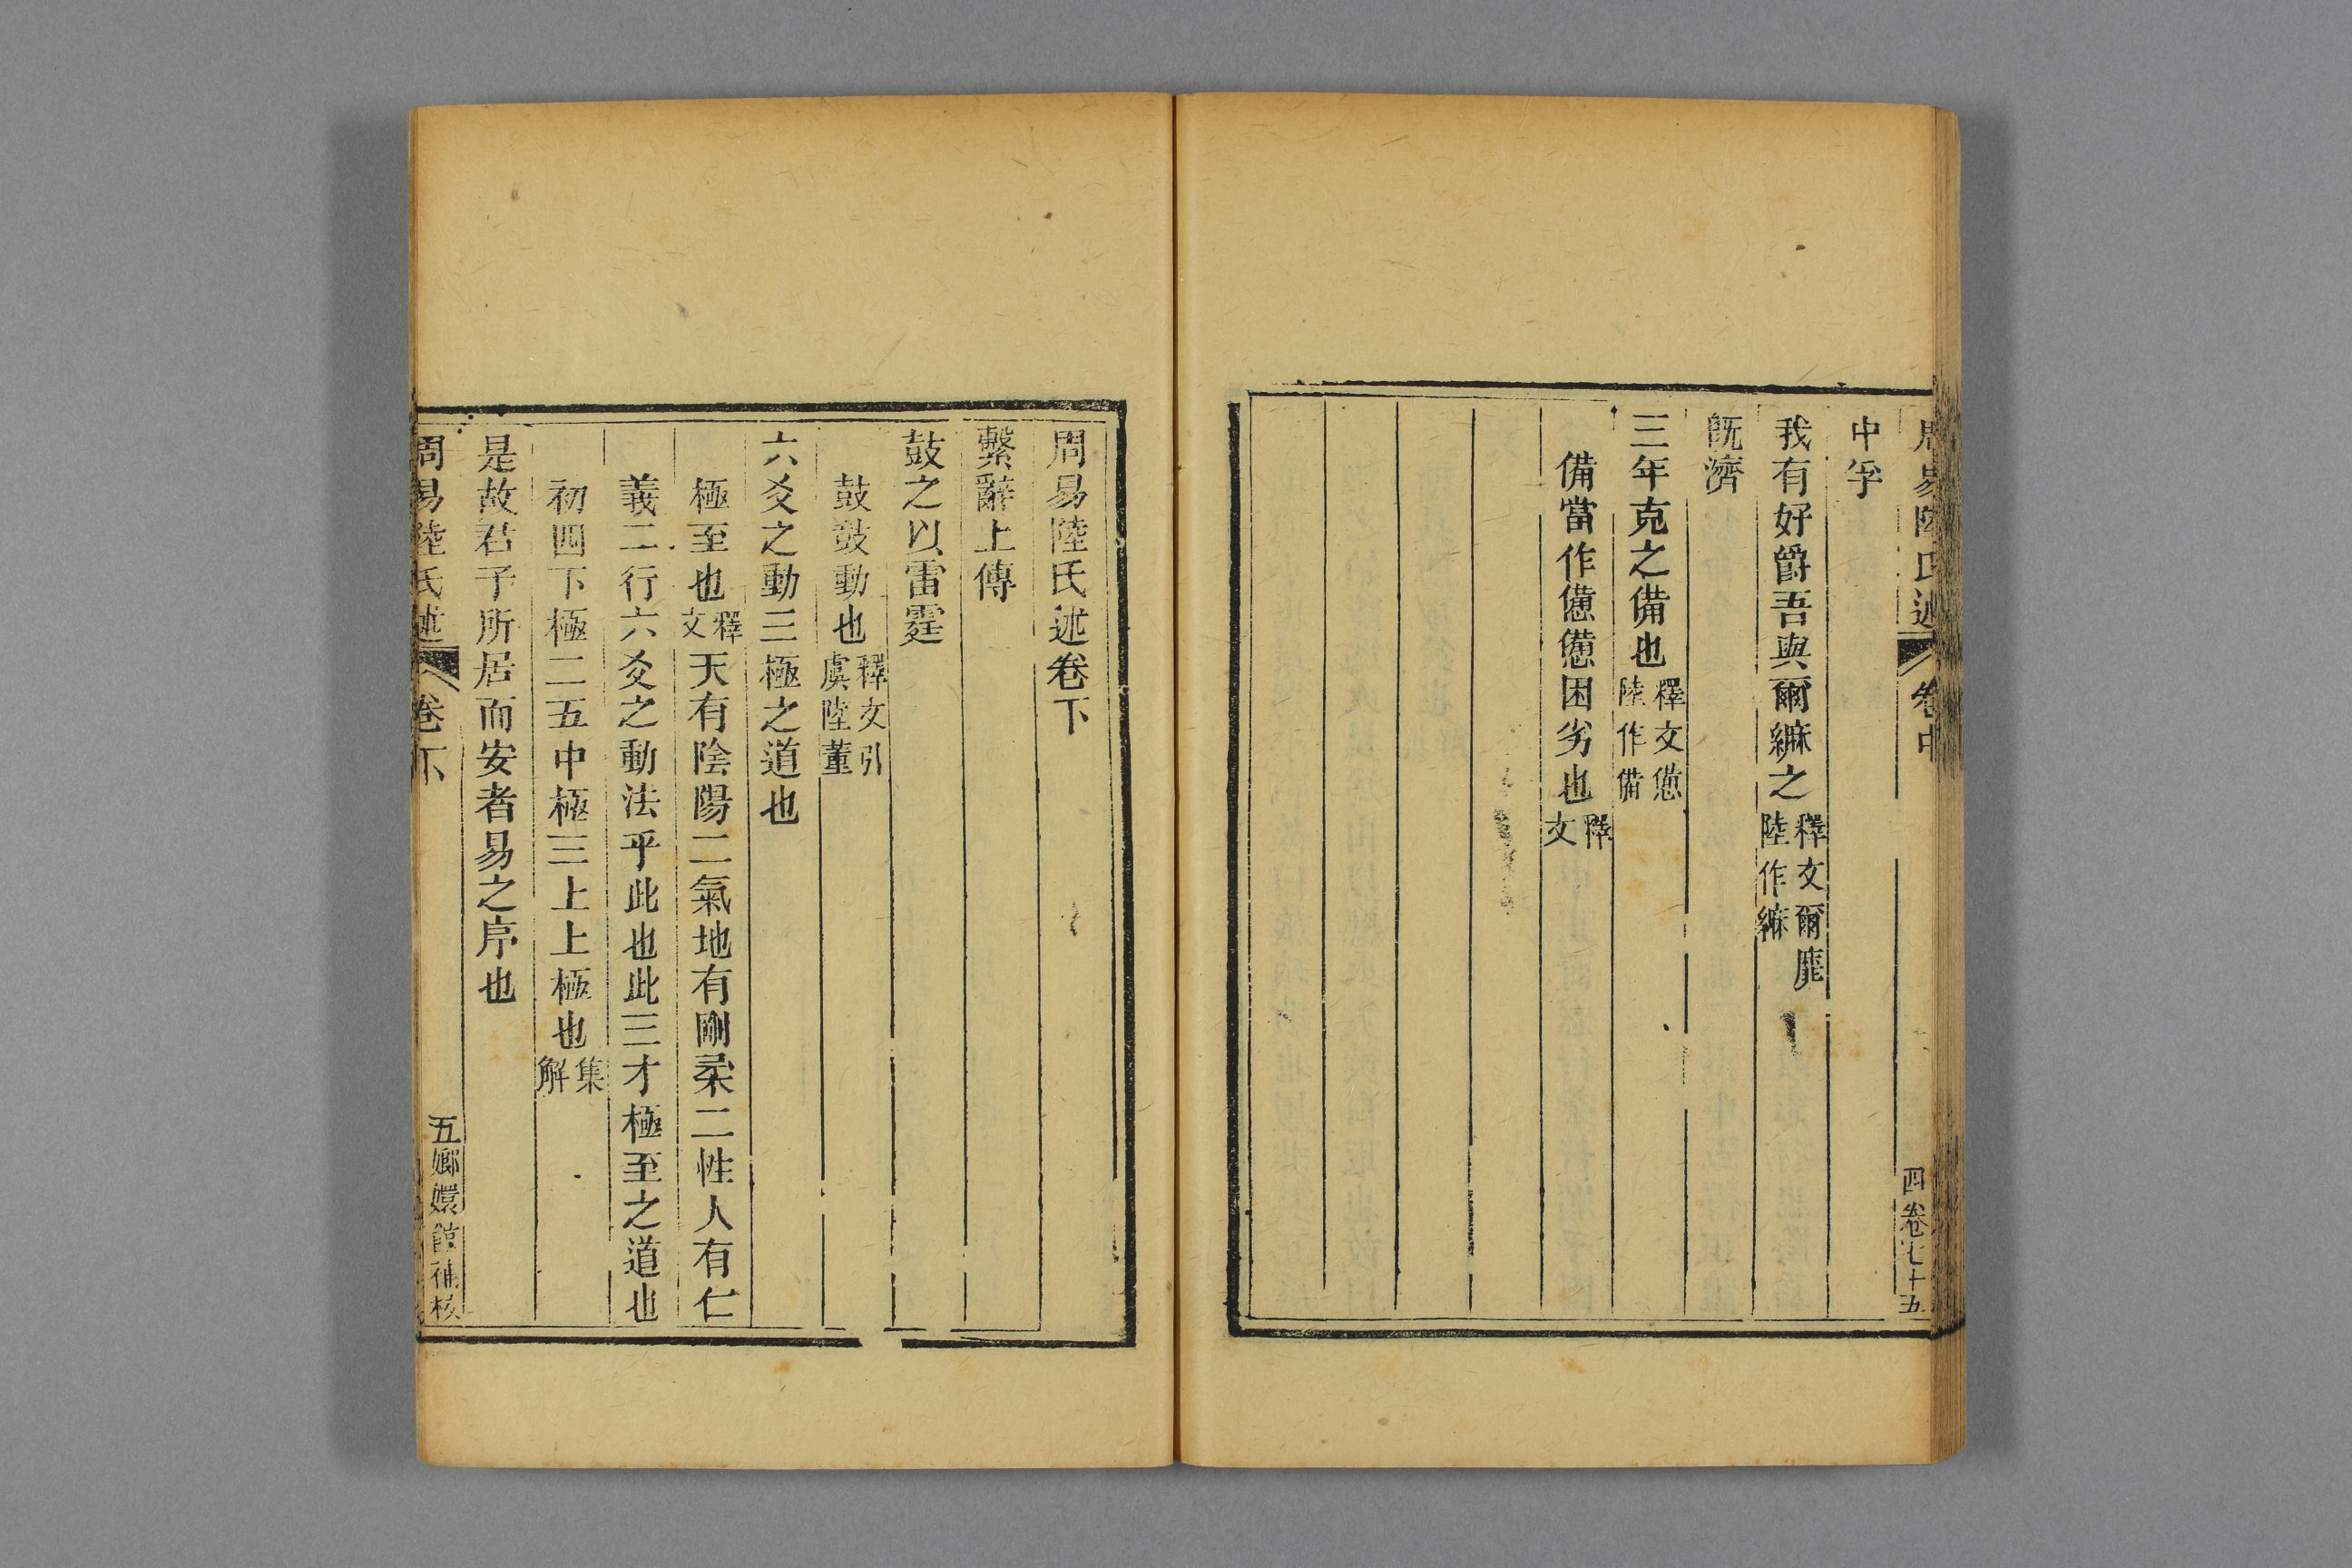 周易陸氏述 卷中 四 卷七十五
中孚
我有好爵吾與爾縻之釋文爾靡陸作縻
既濟
三年克之備也釋文憊陸作備
備當作憊憊困劣也釋文
周易陸氏述卷下
繫辭上傳
鼓之以雷霆
鼓鼓動也釋文引虞陸董
六爻之動三極之道也
極至也釋文天有陰陽二氣地有剛柔二性人有仁
義二行六爻之動法乎此也此三才極至之道也
初四下極二五中極三上上極也集解
是故君子所居而安者易之序也
周易陸氏述 卷下 五 嫏嬛館補校